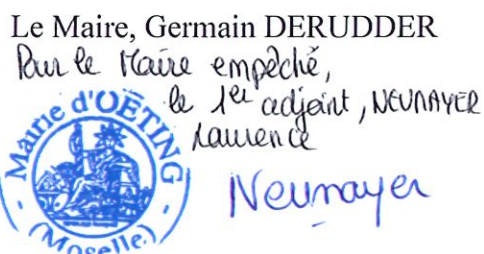 Le Maire, Germain DERUDDER
Pour le Maire empêché,
le 1er adjoint, NEUMAYER
Laurence
Mairie d'OETING
(Moselle)
Neumayer